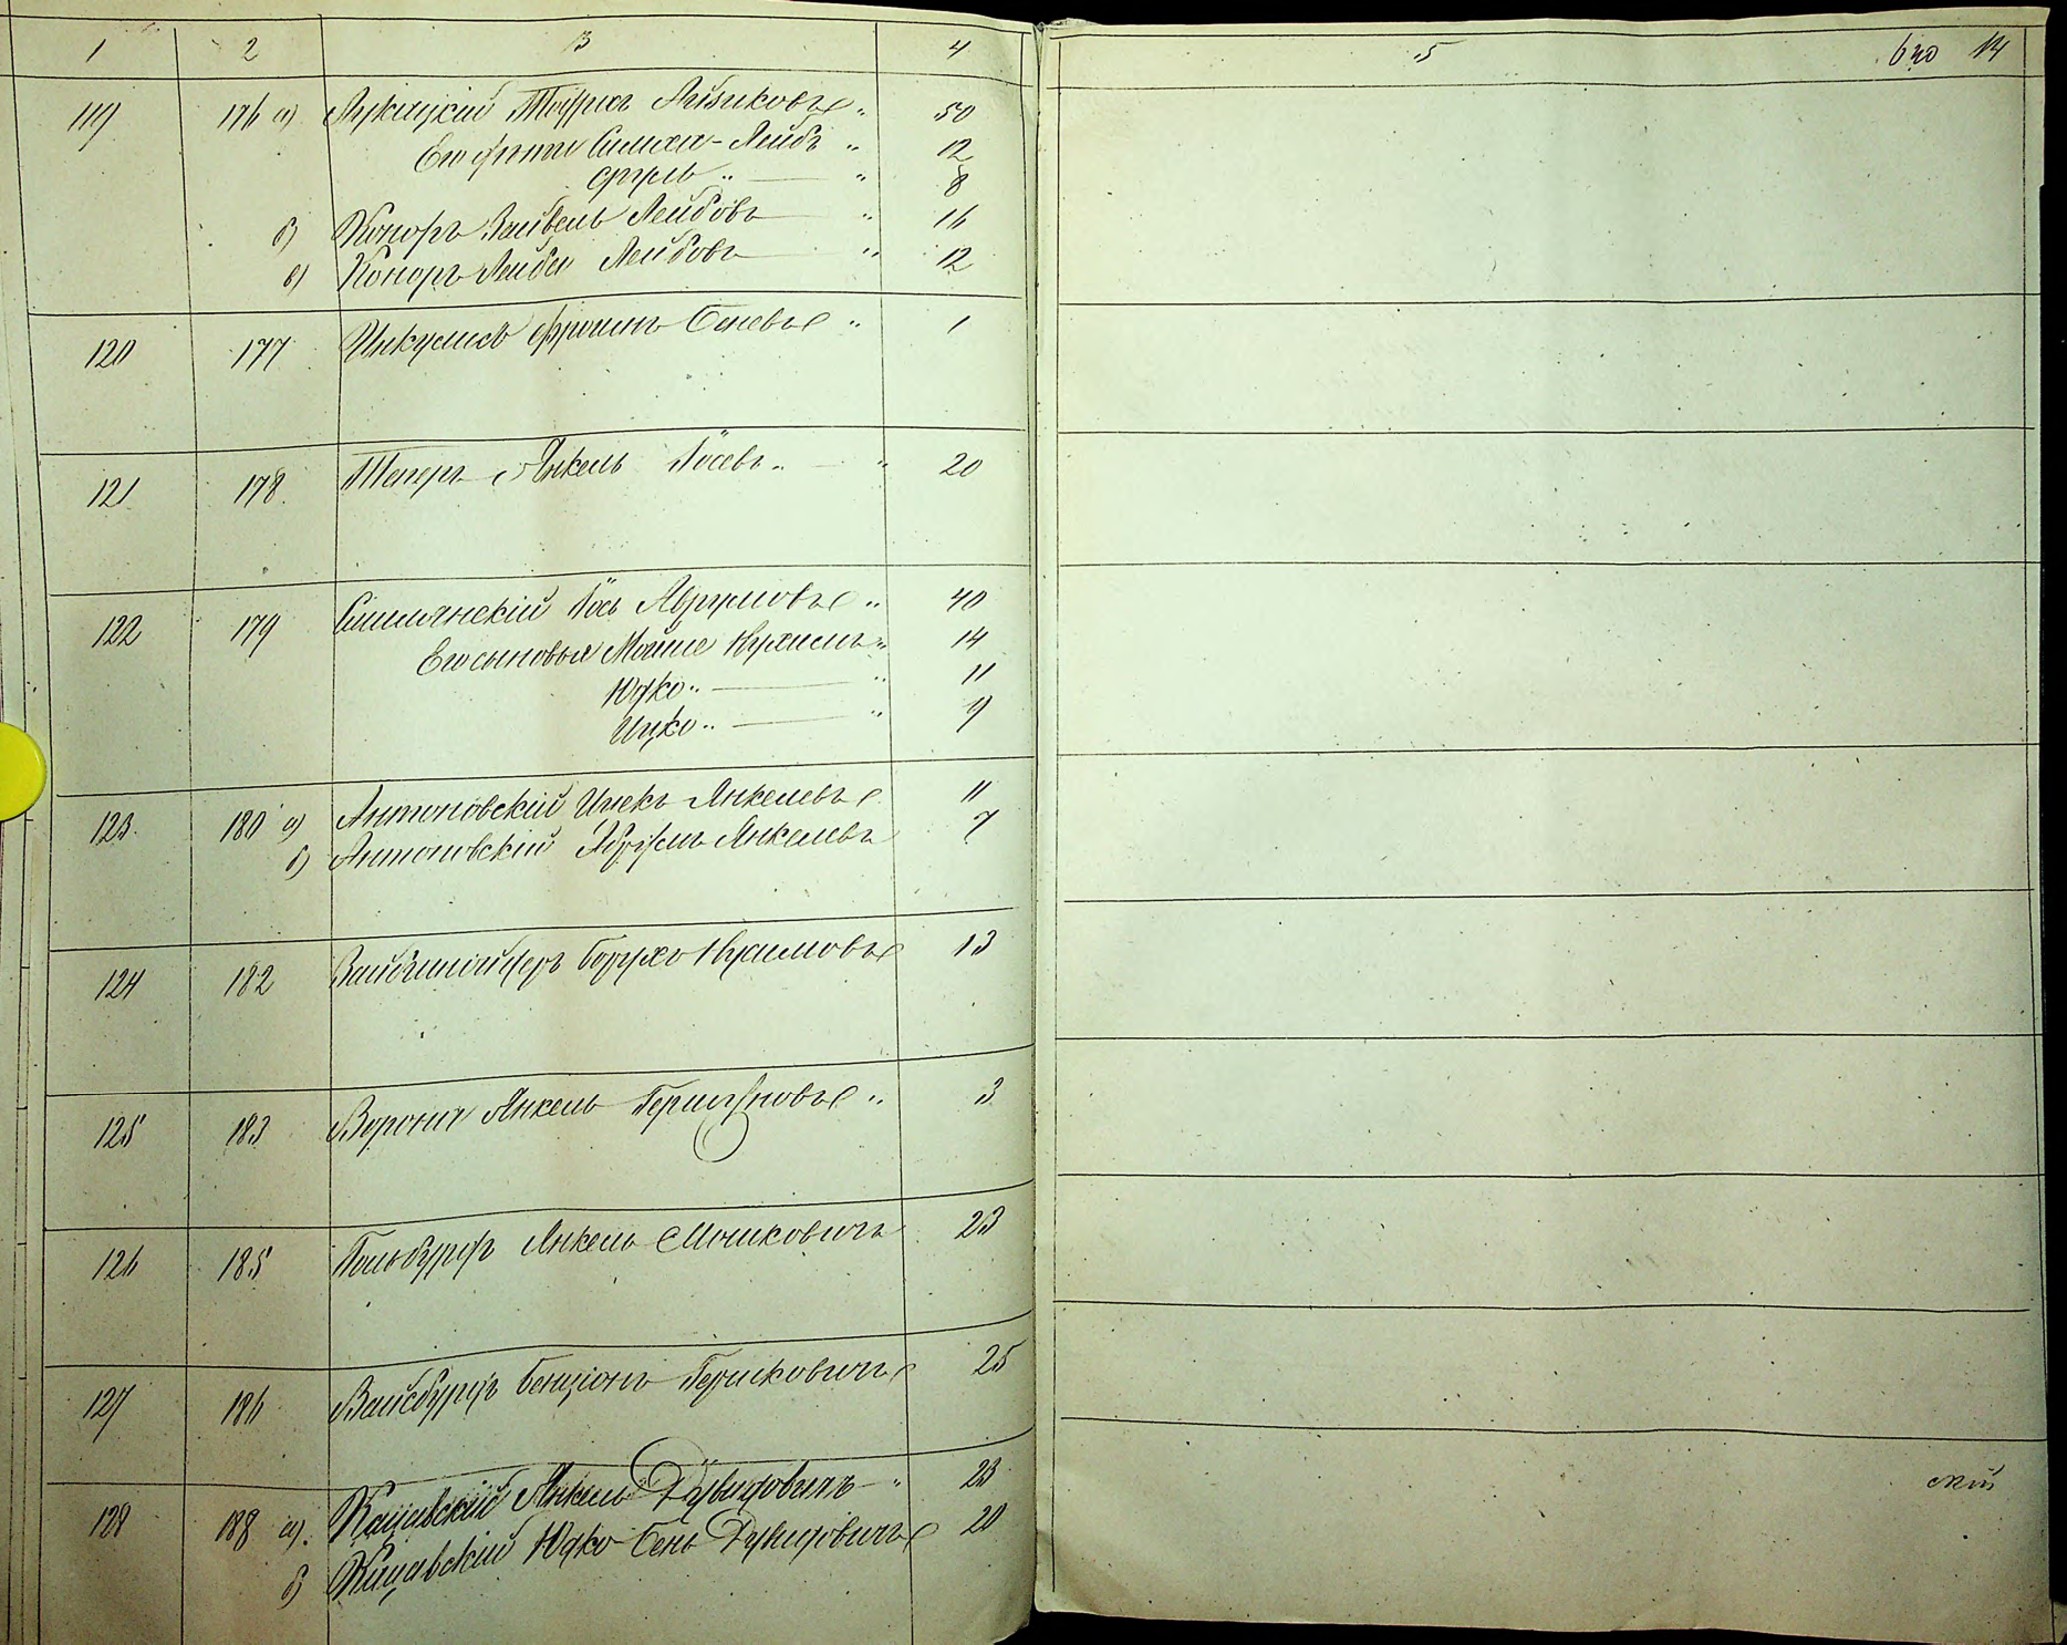 1 2 3 4
119 176 а) Лукацкій Айзиковъ 50
Его дѣти Симха-Лейбъ 12
Сруль 8
б) Коноръ Зайвель Лейбовъ 16
в) Коноръ Лейба Лейбовъ 12
120 177 Фроимъ 1
121 178 Янкель Іосевъ 20
122 179 Смилянскій Іось Аврумовъ 40
Его сыновья Мойше Нухимъ 14
Юдко 11
Ицко 9
123 180 а) Антоновскій Ицекъ Янкелевъ 11
б) Антоновскій Абрамъ Янкелевъ 7
124 182 Борухъ Нухимовъ 13
125 183 Воронъ Янкель Гершуновъ 3
126 185 Гольбурдъ Янкель Мошковичъ 23
127 186 Вайсбурдъ Бенціонъ Гершковичъ 25
128 188 а) Кацавскій Янкель Дувидовичъ 23
б) Кацавскій Юдко-Бень Дувидовичъ 20
5 14
скій